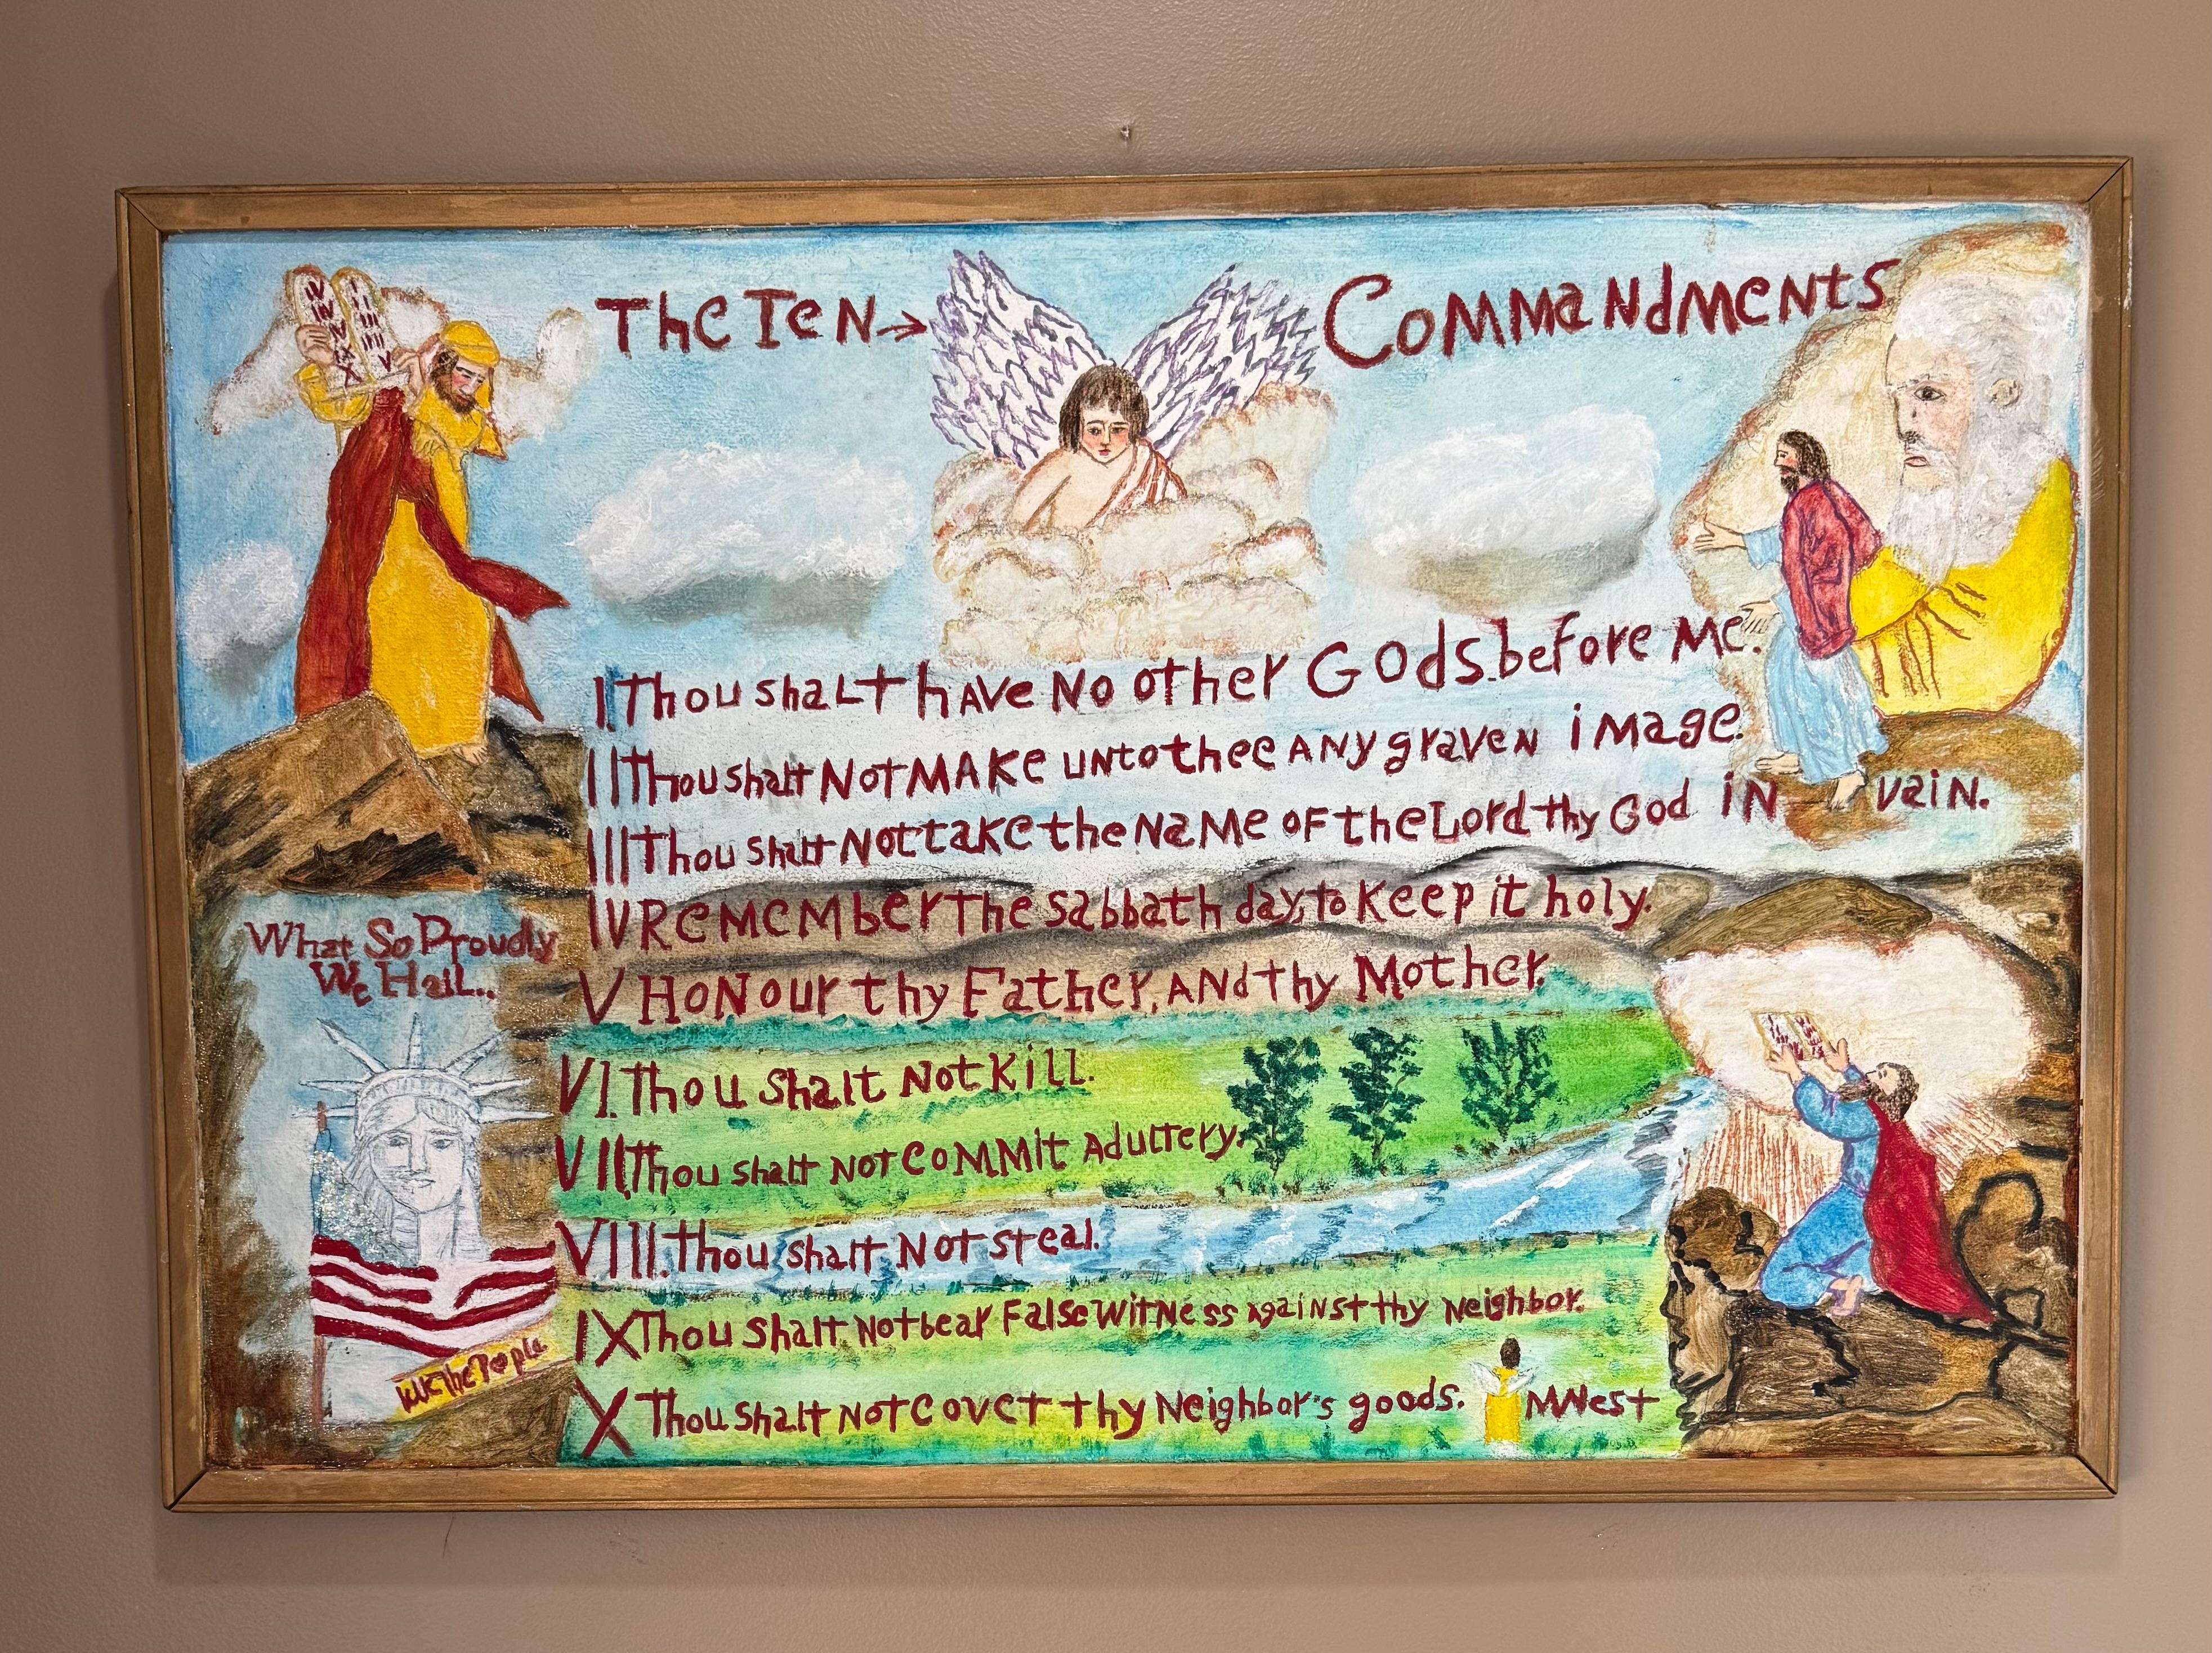 The Ten → Commandments
I. Thou shalt have No other Gods before Me.
II Thou shalt Not Make unto thee Any graven image.
III Thou shalt Not take the Name of the Lord thy God in vain.
IV Remember The Sabbath day, to Keep it holy.
V Honour thy Father, And thy Mother.
VI. Thou Shalt Not Kill.
VII. Thou shalt Not Commit Adultery.
VIII. Thou shalt Not steal.
IX Thou Shalt Not bear False Witness Against thy Neighbor.
X Thou Shalt Not Covet thy Neighbor's goods.
MWest
What So Proudly
We Hail..
We The People